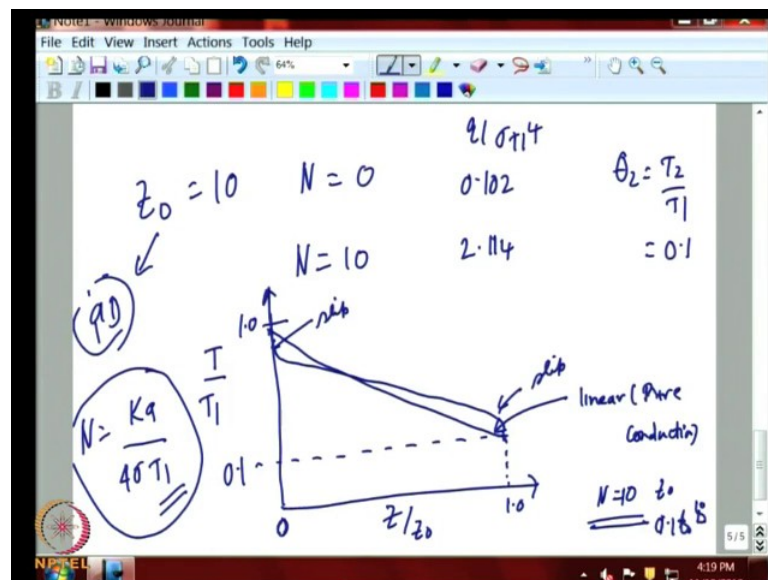 Note1 - Windows Journal
File Edit View Insert Actions Tools Help
64%
B I
q/σT1^4
z0 = 10 N = 0 0.102 θ2 = T2/T1
N = 10 2.114 = 0.1
aD
N = Ka/4σT1
T/T1
1.0
slip
slip
linear (Pure
Conduction)
0.1
0
z/z0
1.0
N=10 z0
0.1
5/5
NPTEL
4:19 PM